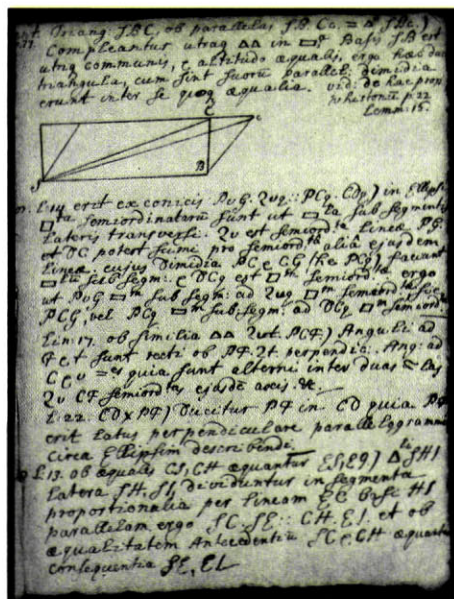 Triang. SBC, ob parallelas SB Cc, = Δ SBc,)
Compleantur utraq ΔΔ in Basis SB est
utriq communis, & altitudo aequalis, ergo haec duo
triangula, cum sint suorum parallel: dimidia
erunt inter se quoq aequalia. vid: de hac prop
p 22
Lemm: 15.
C
c
B
S
L: 14 erit ex conicis PvG. Qvq :: PCq. CDq) in Ellipsi
semiordinatarum sunt ut sub segmentis
Lateris transversi. Qv est semiord: Lineae PG.
et DC potest sumi pro semiord: alia ejusdem
Lineae. cujus dimidia PC & CG (he PCq) faciunt
sub segm: & DCq est semiord: ergo
ut PvG sub segm: ad Qvq semiord: sic
PCG, vel PCq sub segm: ad DCq semiord:
Lin: 17. ob similia ΔΔ Qvt. PCF) Anguli ad
F & t sunt recti ob PF. Qt perpendic: Ang: ad
C & v = es quia sunt alterni inter duas = las
Qv CF semiord: ejusdem axis. &c.
L: 22. CD x PF) Ducitur PF in CD quia PF
erit Latus perpendiculare parallelogrammi
circa Ellipsim describendi.
L: 13. ob aequales CS, CH aequantur ES, EI) Δ li SHI
Latera SH, SI, dividuntur in segmenta
proportionalia per lineam EC basi HI
parallelam. ergo SC. SE :: CH. EI. et ob
aequalitatem Antecedentiu SC & CH aequantur
consequentia SE, EI